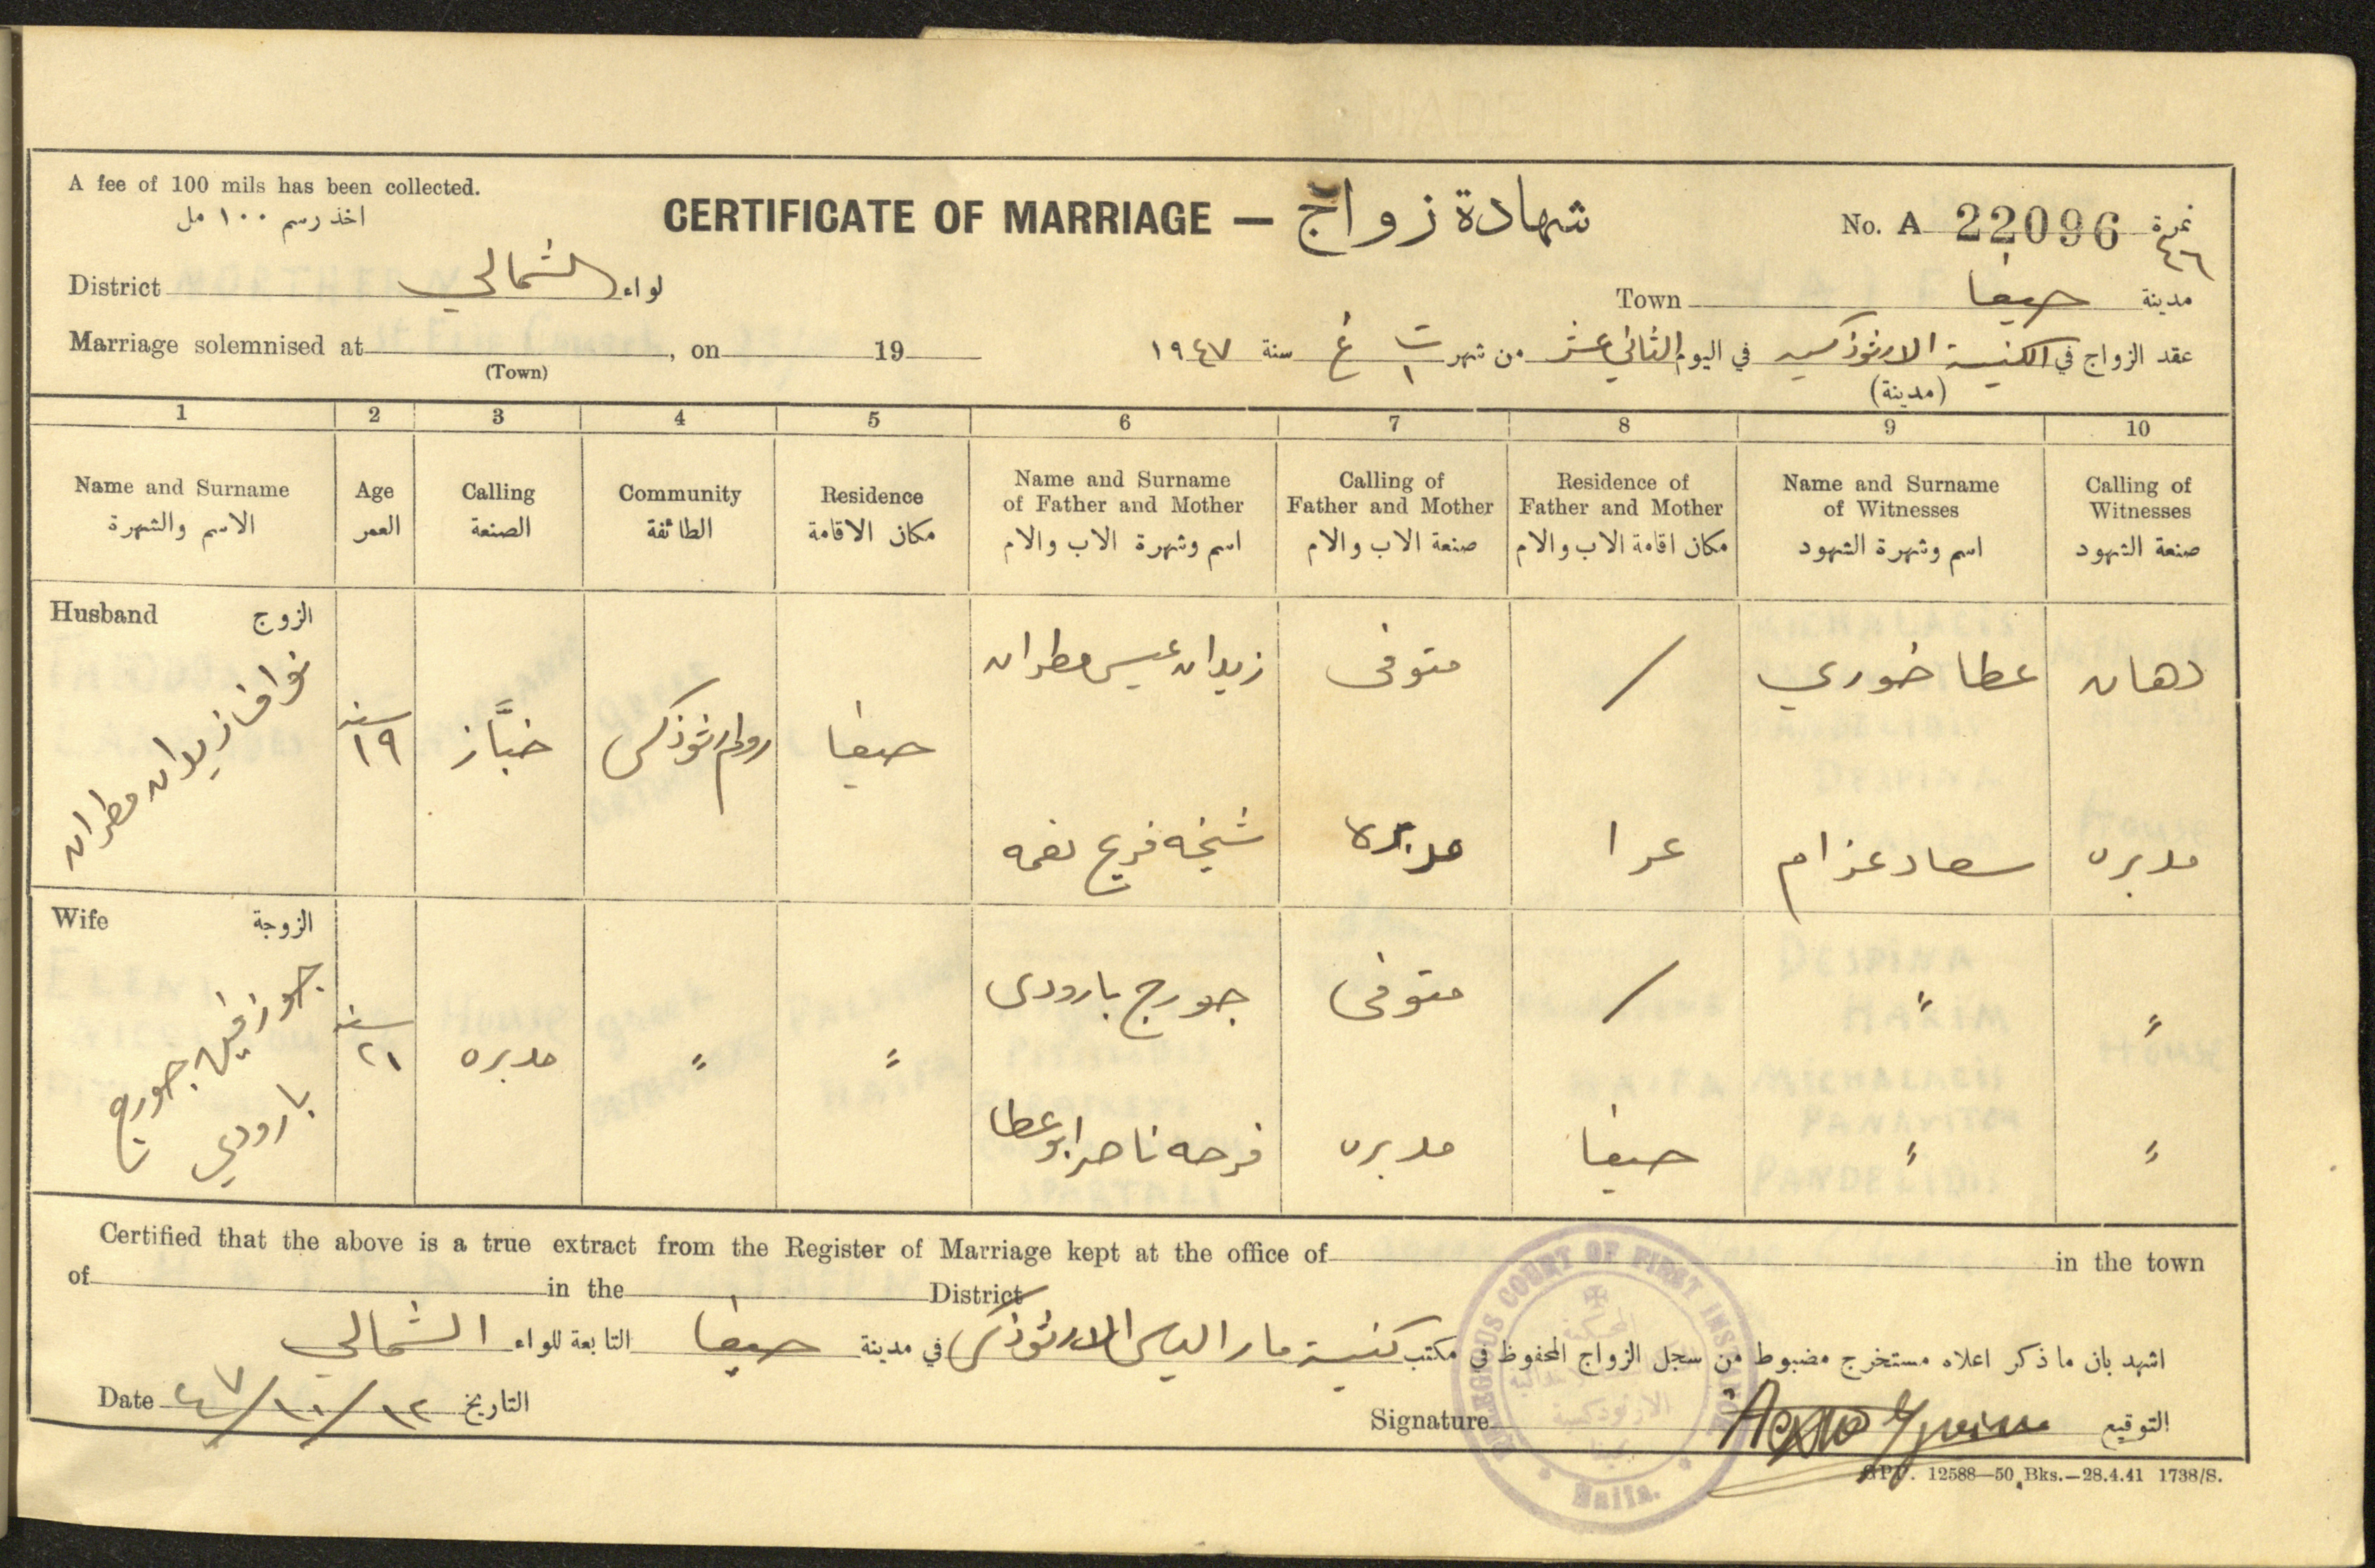 A fee of 100 mils has been collected.
اخذ رسم ١٠٠ مل
CERTIFICATE OF MARRIAGE — شهادة زواج
No. A 22096 نمرة
٤٦
District الشمالي لواء
Town حيفا مدينة
Marriage solemnised at , on 19
(Town)
عقد الزواج في الكنيسة الارثوذكسيه في اليوم الثاني عشر من شهر ت ١ غ سنة ١٩٤٧
(مدينة)
1 2 3 4 5 6 7 8 9 10
Name and Surname
الاسم والشهرة
Age
العمر
Calling
الصنعة
Community
الطائفة
Residence
مكان الاقامة
Name and Surname
of Father and Mother
اسم وشهرة الاب والام
Calling of
Father and Mother
صنعة الاب والام
Residence of
Father and Mother
مكان اقامة الاب والام
Name and Surname
of Witnesses
اسم وشهرة الشهود
Calling of
Witnesses
صنعة الشهود
Husband الزوج
نواف زيدان مطران
سنه
١٩
خبَّاز
روم ارثوذكس
حيفا
زيدان عيسى مطران
متوفى
/
عطا خوري
دهان
شيخه فريح نعمه
مدبره
عرا
سعاد عزام
مدبره
Wife الزوجة
جوزفين جورج
بارودي
سنه
٢١
مدبره
"
"
جورج بارودى
متوفى
/
"
"
فرحه ناصر ابو عطا
مدبره
حيفا
"
"
Certified that the above is a true extract from the Register of Marriage kept at the office of in the town
of in the District
اشهد بان ما ذكر اعلاه مستخرج مضبوط من سجل الزواج المحفوظ في مكتب كنيسة مار الياس الارثوذكس في مدينة حيفا التابعة للواء الشمالي
Date ١٢/١٠/٤٧ التاريخ
Signature التوقيع
COURT OF FIRST INSTANCE
الارثوذكسية
Haifa.
12588—50 Bks.—28.4.41 1738/S.